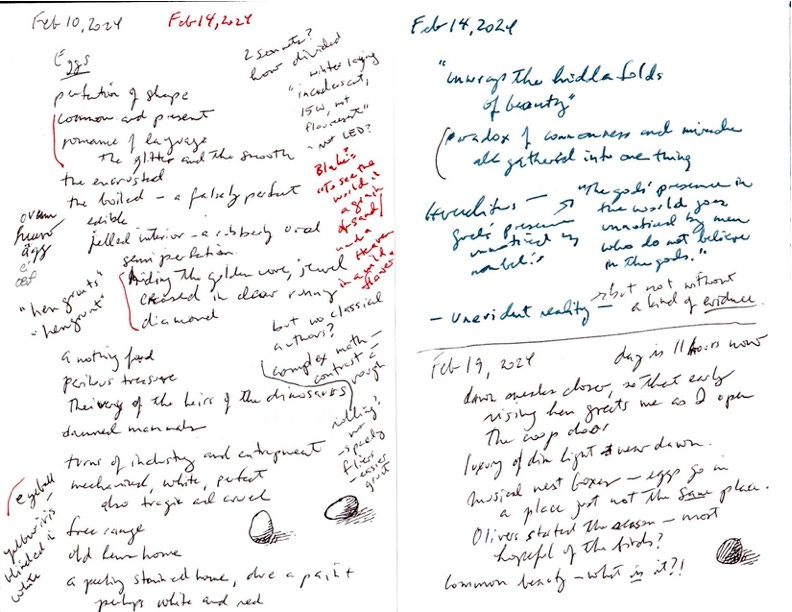 Feb 10, 2024
Feb 14, 2024
Eggs
perfection of shape
common and present
romance of language
the glitter and the smooth
the encrusted
the boiled – a falsely perfect
edible
jelled interior – a rubbery oval
semi perfection
hiding the golden core, jewel
encased in clear runny
diamond
a nothing food
perilous treasure
The ivory of the heirs of the dinosaurs
damned mammals
turns of industry and entrapment
mechanised, white, perfect
also tragic and cruel
free range
old hewn home
a peeling stained home, due a paint
perhaps white and red
2 sonnets?
how divided
winter laying
"incandescent,
15W, not
flourescent"
- not LED?
Blake's
"To see the
world in
a grain
of sand
and a
Heaven
in a wild
flower"
but no classical
authors?
complex math –
contrast a –
rough
rolling?
no
- speedy
fliers
- easier
ovum
huevo
ägg
"hen grunts"
"hengrunt"
eyeball
–
yellow iris
blinded in
white
Feb 14, 2024
"unwrap the hidden folds
of beauty"
Paradox of commonness and miracle
all gathered into one thing
gods' presence
unnoticed by
nonbel's
"The gods' presence in
the world goes
unnoticed by men
who do not believe
in the gods."
– unevident reality –
but not without
a kind of evidence.
Feb 19, 2024
day is 11 hours now
dawn sneaks closer, so that early
rising hen greets me as I open
the coop door
luxury of dim light near dawn.
musical nest boxes – eggs go in
a place just not the same place.
Olivers stated the season – most
hopeful of the birds?
common beauty – what is it?!